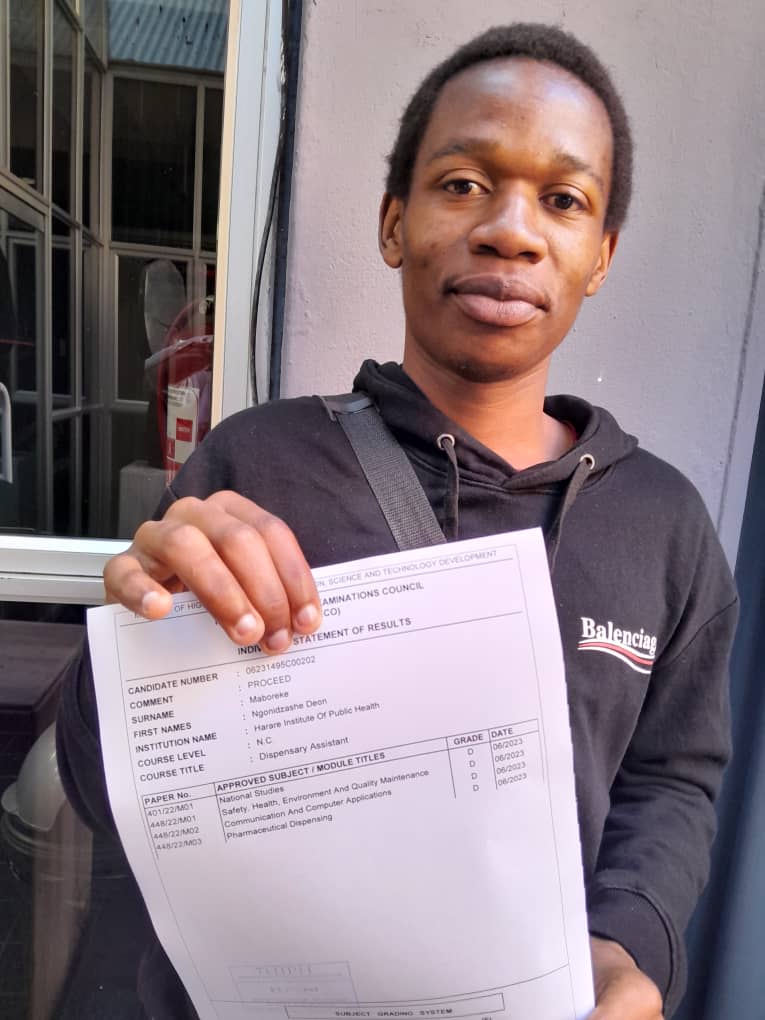 ON, SCIENCE AND TECHNOLOGY DEVELOPMENT
OF HIG
AMINATIONS COUNCIL
CO)
STATEMENT OF RESULTS
CANDIDATE NUMBER : 06231495C00202
COMMENT : PROCEED
SURNAME : Maboreke
FIRST NAMES : Ngonidzashe Deon
INSTITUTION NAME : Harare Institute Of Public Health
COURSE LEVEL : N.C.
COURSE TITLE : Dispensary Assistant
PAPER No. APPROVED SUBJECT / MODULE TITLES GRADE DATE
401/22/M01 National Studies D 06/2023
448/22/M01 Safety, Health, Environment And Quality Maintenance D 06/2023
448/22/M02 Communication And Computer Applications D 06/2023
448/22/M03 Pharmaceutical Dispensing D 06/2023
SUBJECT GRADING SYSTEM
Balenciag